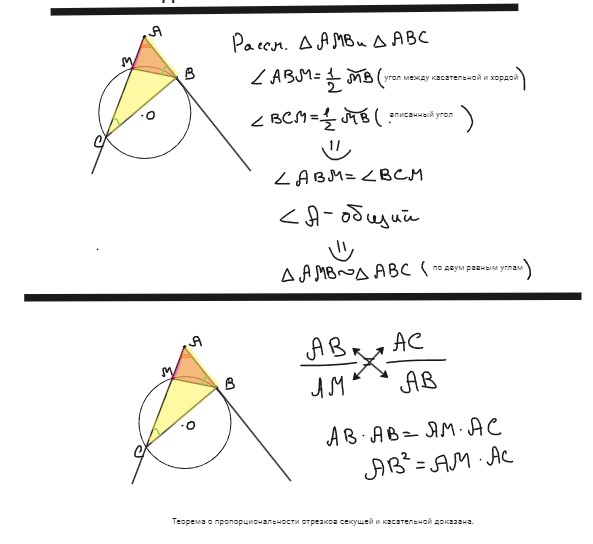 A
M
B
O
C
Рассм. △ AMB и △ ABC
∠ ABM = 1/2 MB (угол между касательной и хордой)
∠ BCM = 1/2 MB ( вписанный угол )
∠ ABM = ∠ BCM
∠ A - общий
△ AMB ~ △ ABC ( по двум равным углам )
A
M
B
O
C
AB AC
AM AB
AB · AB = AM · AC
AB² = AM · AC
Теорема о пропорциональности отрезков секущей и касательной доказана.